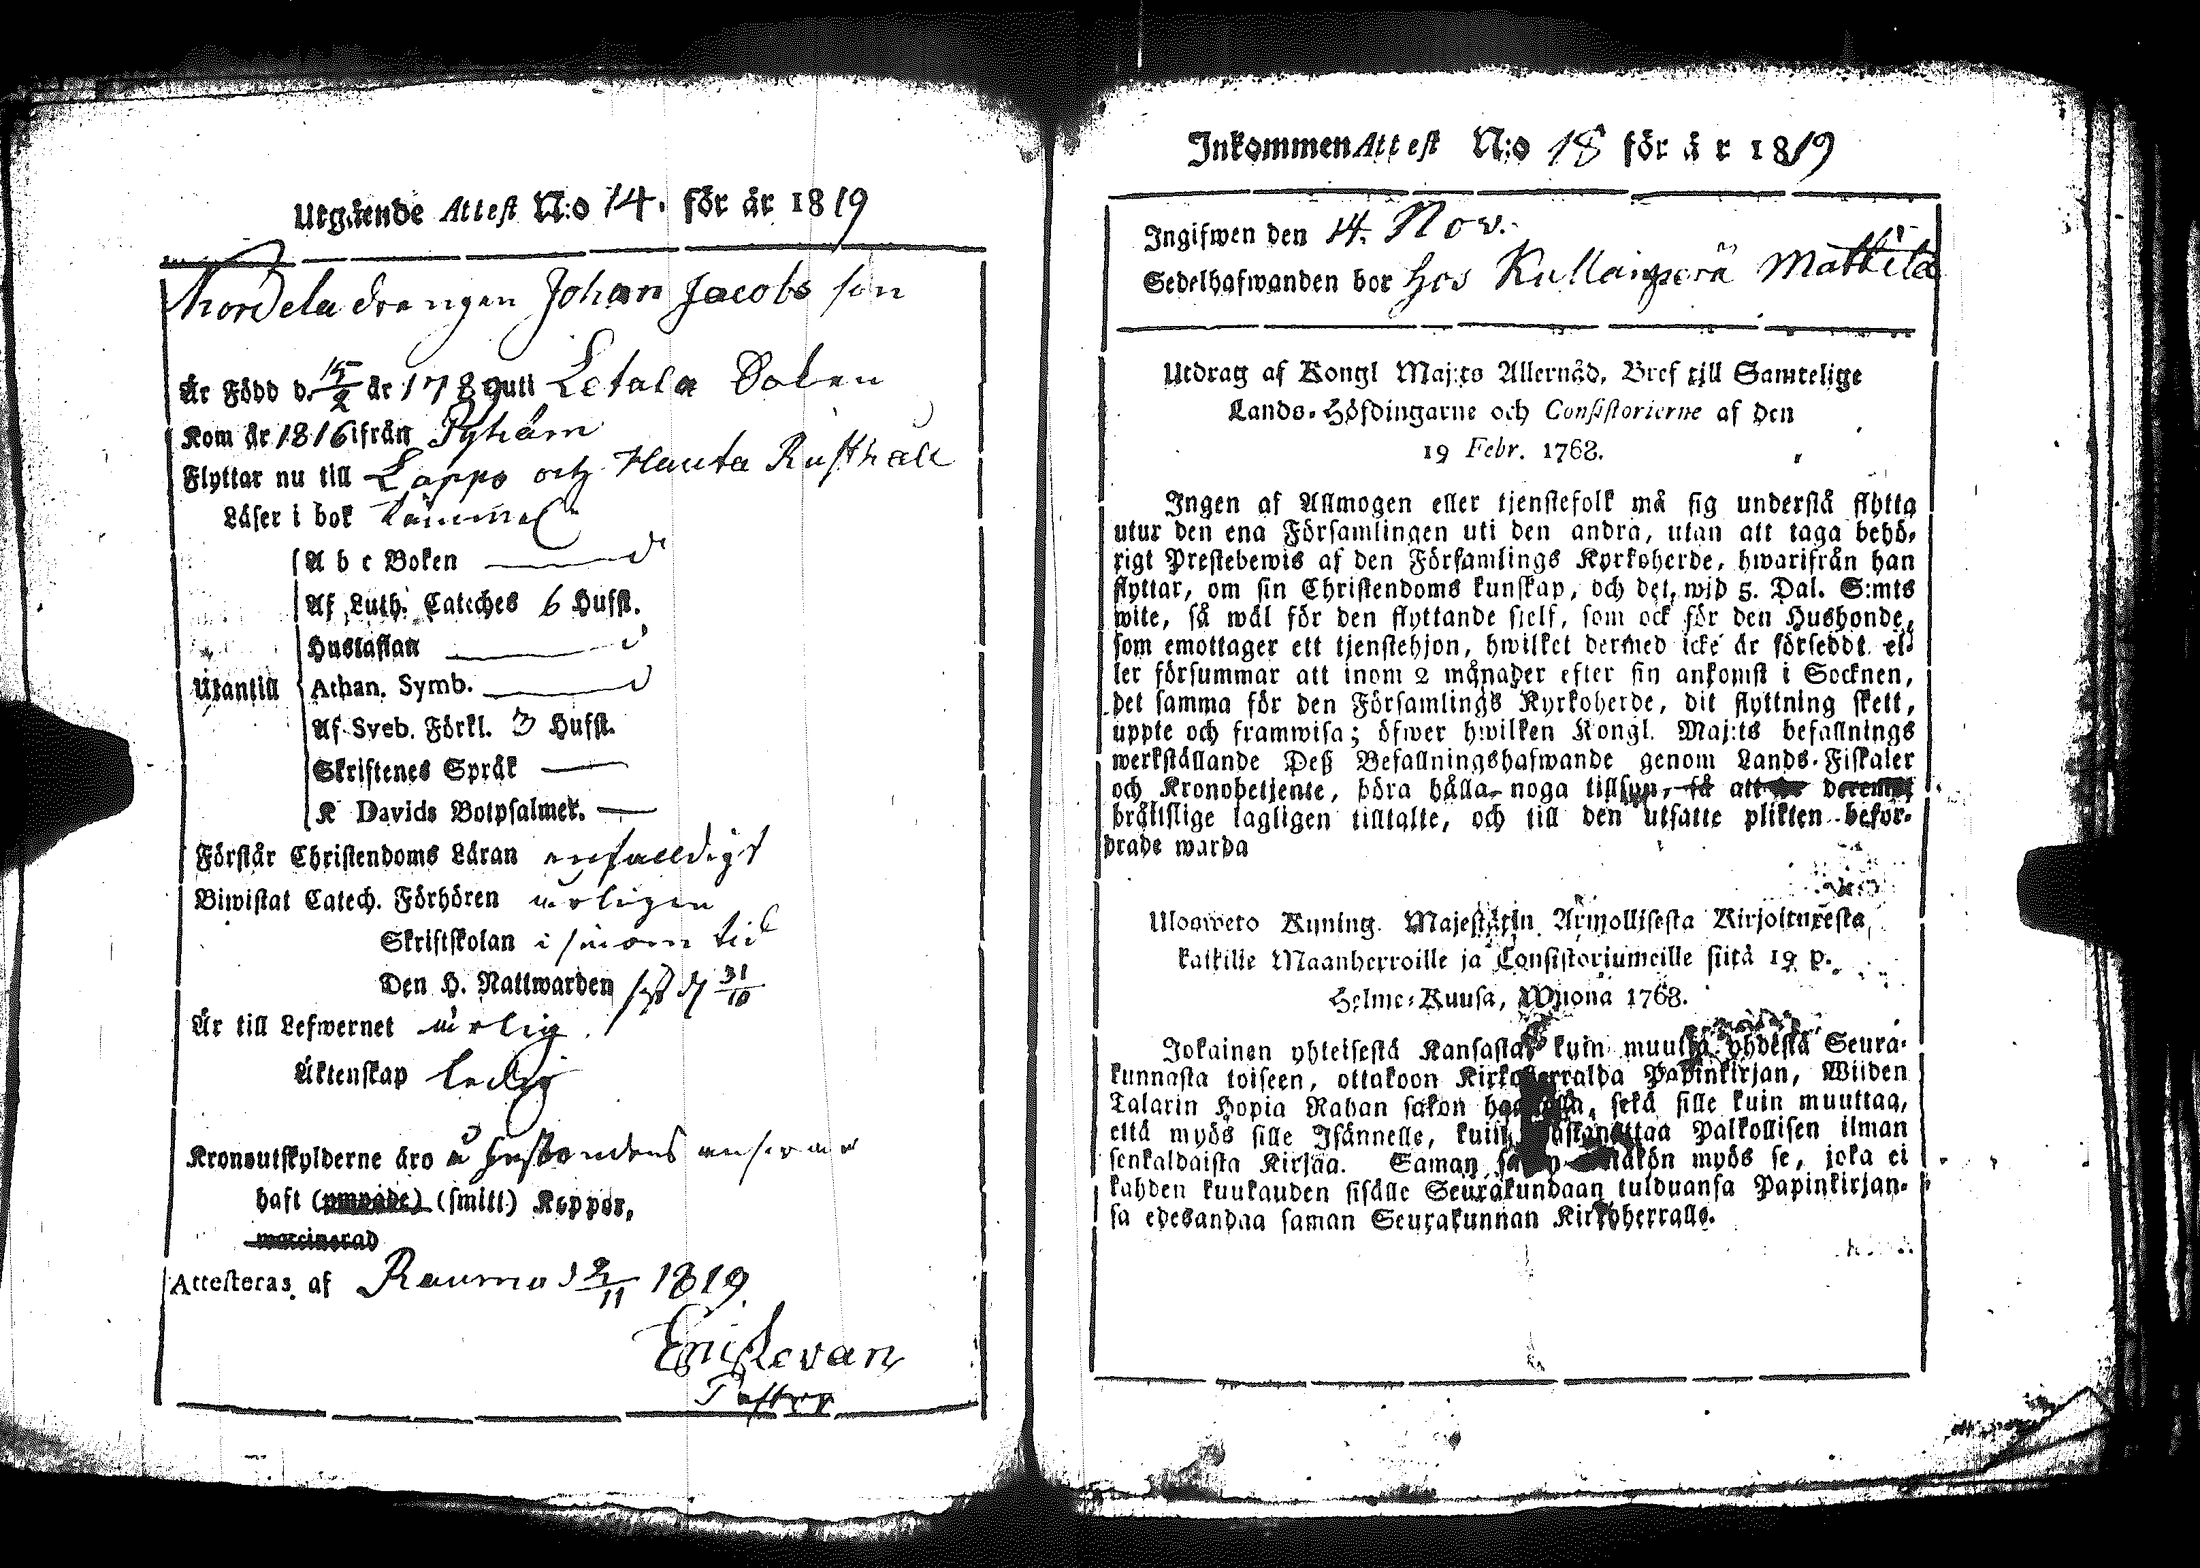 Utgående Attest N:o 14. för år 1819
Nordela drengen Johan Jacobs son
Är Född d. 15/2 år 1789 uti Letala Soken
Kom år 1816 ifrån Pyhäm
Flyttar nu till Lappo och Hauta Rusthåll
Läser i bok
A b c Boken
Af Luth. Cateches 6 Hufst.
Hustaflan
Utantill
Athan. Symb.
Af Sveb. Förkl. 3 Hufst.
Skriftenes Språk —
K Davids Botpsalmer. —
Förstår Christendoms Läran enfaldigt
Biwistat Catech. Förhören
Skriftskolan i sinom tid
Den H. Nattwarden sist d 31/10
Är till Lefwernet ärlig.
Äktenskap ledig
Kronoutskylderne äro
haft (ympade) (smitt) Koppor,
waccinerad
Attesteras af Raumo d 9/11 1819
Pastor
Inkommen Attest N:o 18 för år 1819
Ingifwen den 14. Nov.
Sedelhafwanden bor hos Kullanperä Mattila
Utdrag af Kongl Maj:ts Allernåd. Bref till Samtelige
Lands-Höfdingarne och Consistorierne af den
19 Febr. 1768.
Ingen af Allmogen eller tjenstefolk må sig understå flytta
utur den ena Församlingen uti den andra, utan att taga behö-
rigt Prestebewis af den Församlings Kyrkoherde, hwarifrån han
flyttar, om sin Christendoms kunskap, och det, wid 5. Dal. S:mts
wite, så wäl för den flyttande sielf, som ock för den Husbonde,
som emottager ett tjenstehjon, hwilket dermed icke är försedbt el-
ler försummar att inom 2 månader efter sin ankomst i Socknen,
det samma för den Församlings Kyrkoherde, dit flyttning skett,
uppte och framwisa; öfwer hwilken Kongl. Maj:ts befallnings
werkställande Deß Befallningshafwande genom Lands-Fiskaler
och Kronobetjente, böra hålla noga tillsyn, så att de deremot
brätslige lagligen tilltalte, och till den utsatte plikten befor-
drade warda
Ulosweto Kuning. Majestätin Armollisesta Kirjoituxesta
kaikille Maanherroille ja Consistoriumeille siitä 19 p.
Helme-Kuusa, Wuona 1768.
Jokainen yhteisestä Kansasta, kuin muutta yhdestä Seura-
kunnasta toiseen, ottakoon Kirkoherralda Papinkirjan, Wiiden
Talarin Hopia Rahan sakon haastolla, sekä sille kuin muuttaa,
että myös sille Isännelle, kuin wastanottaa Palkollisen ilman
senkaldaista Kirjaa. Saman sakon myös se, joka ei
kahden kuukauden sisälle Seurakundaan tulduansa Papinkirjan-
sa edesandaa saman Seurakunnan Kirkoherralle.